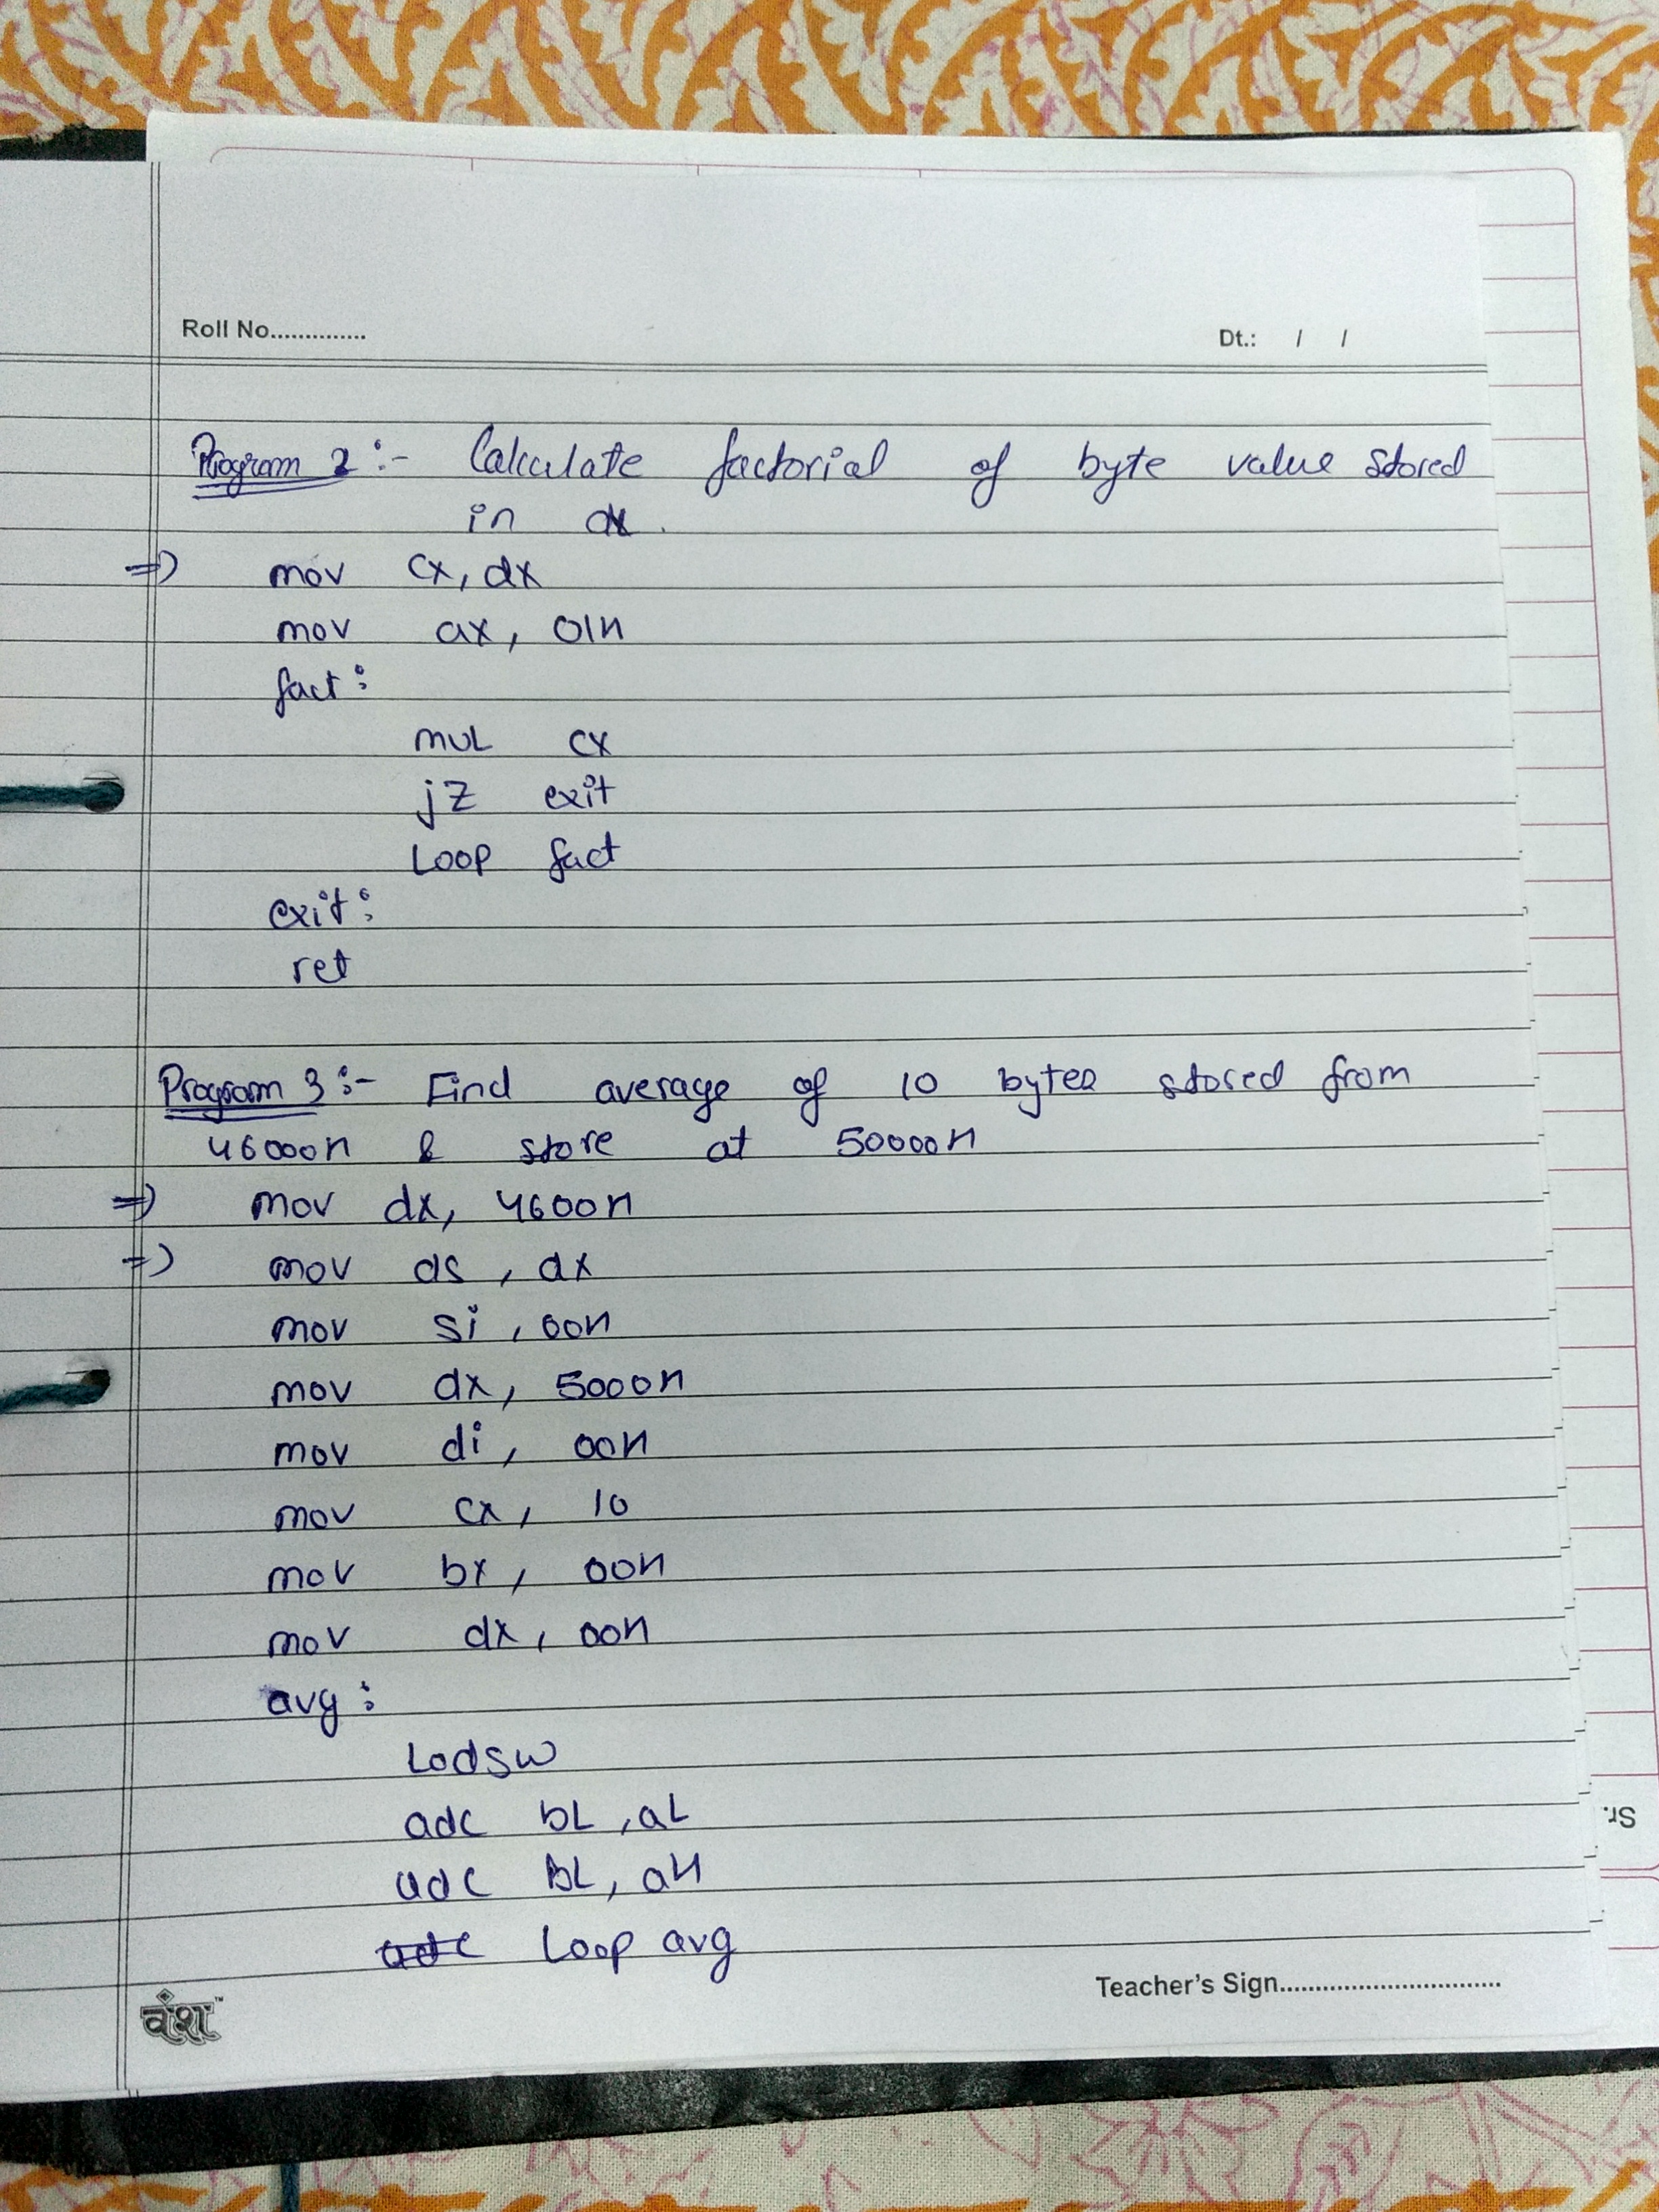 Roll No..............
Dt.: / /
Program 2 :- Calculate factorial of byte value stored
in dx.
=> mov cx, dx
mov ax, 01H
fact :
mul cx
jz exit
Loop fact
exit :
ret
Program 3 :- Find average of 10 bytes stored from
46000H & store at 50000H
=> mov dx, 4600H
=> mov ds, dx
mov si, 00H
mov dx, 5000H
mov di, 00H
mov cx, 10
mov bx, 00H
mov dx, 00H
avg :
Lodsw
adc bL, aL
adc bL, aH
adc Loop avg
Teacher's Sign...............................
वंश™
Sr.